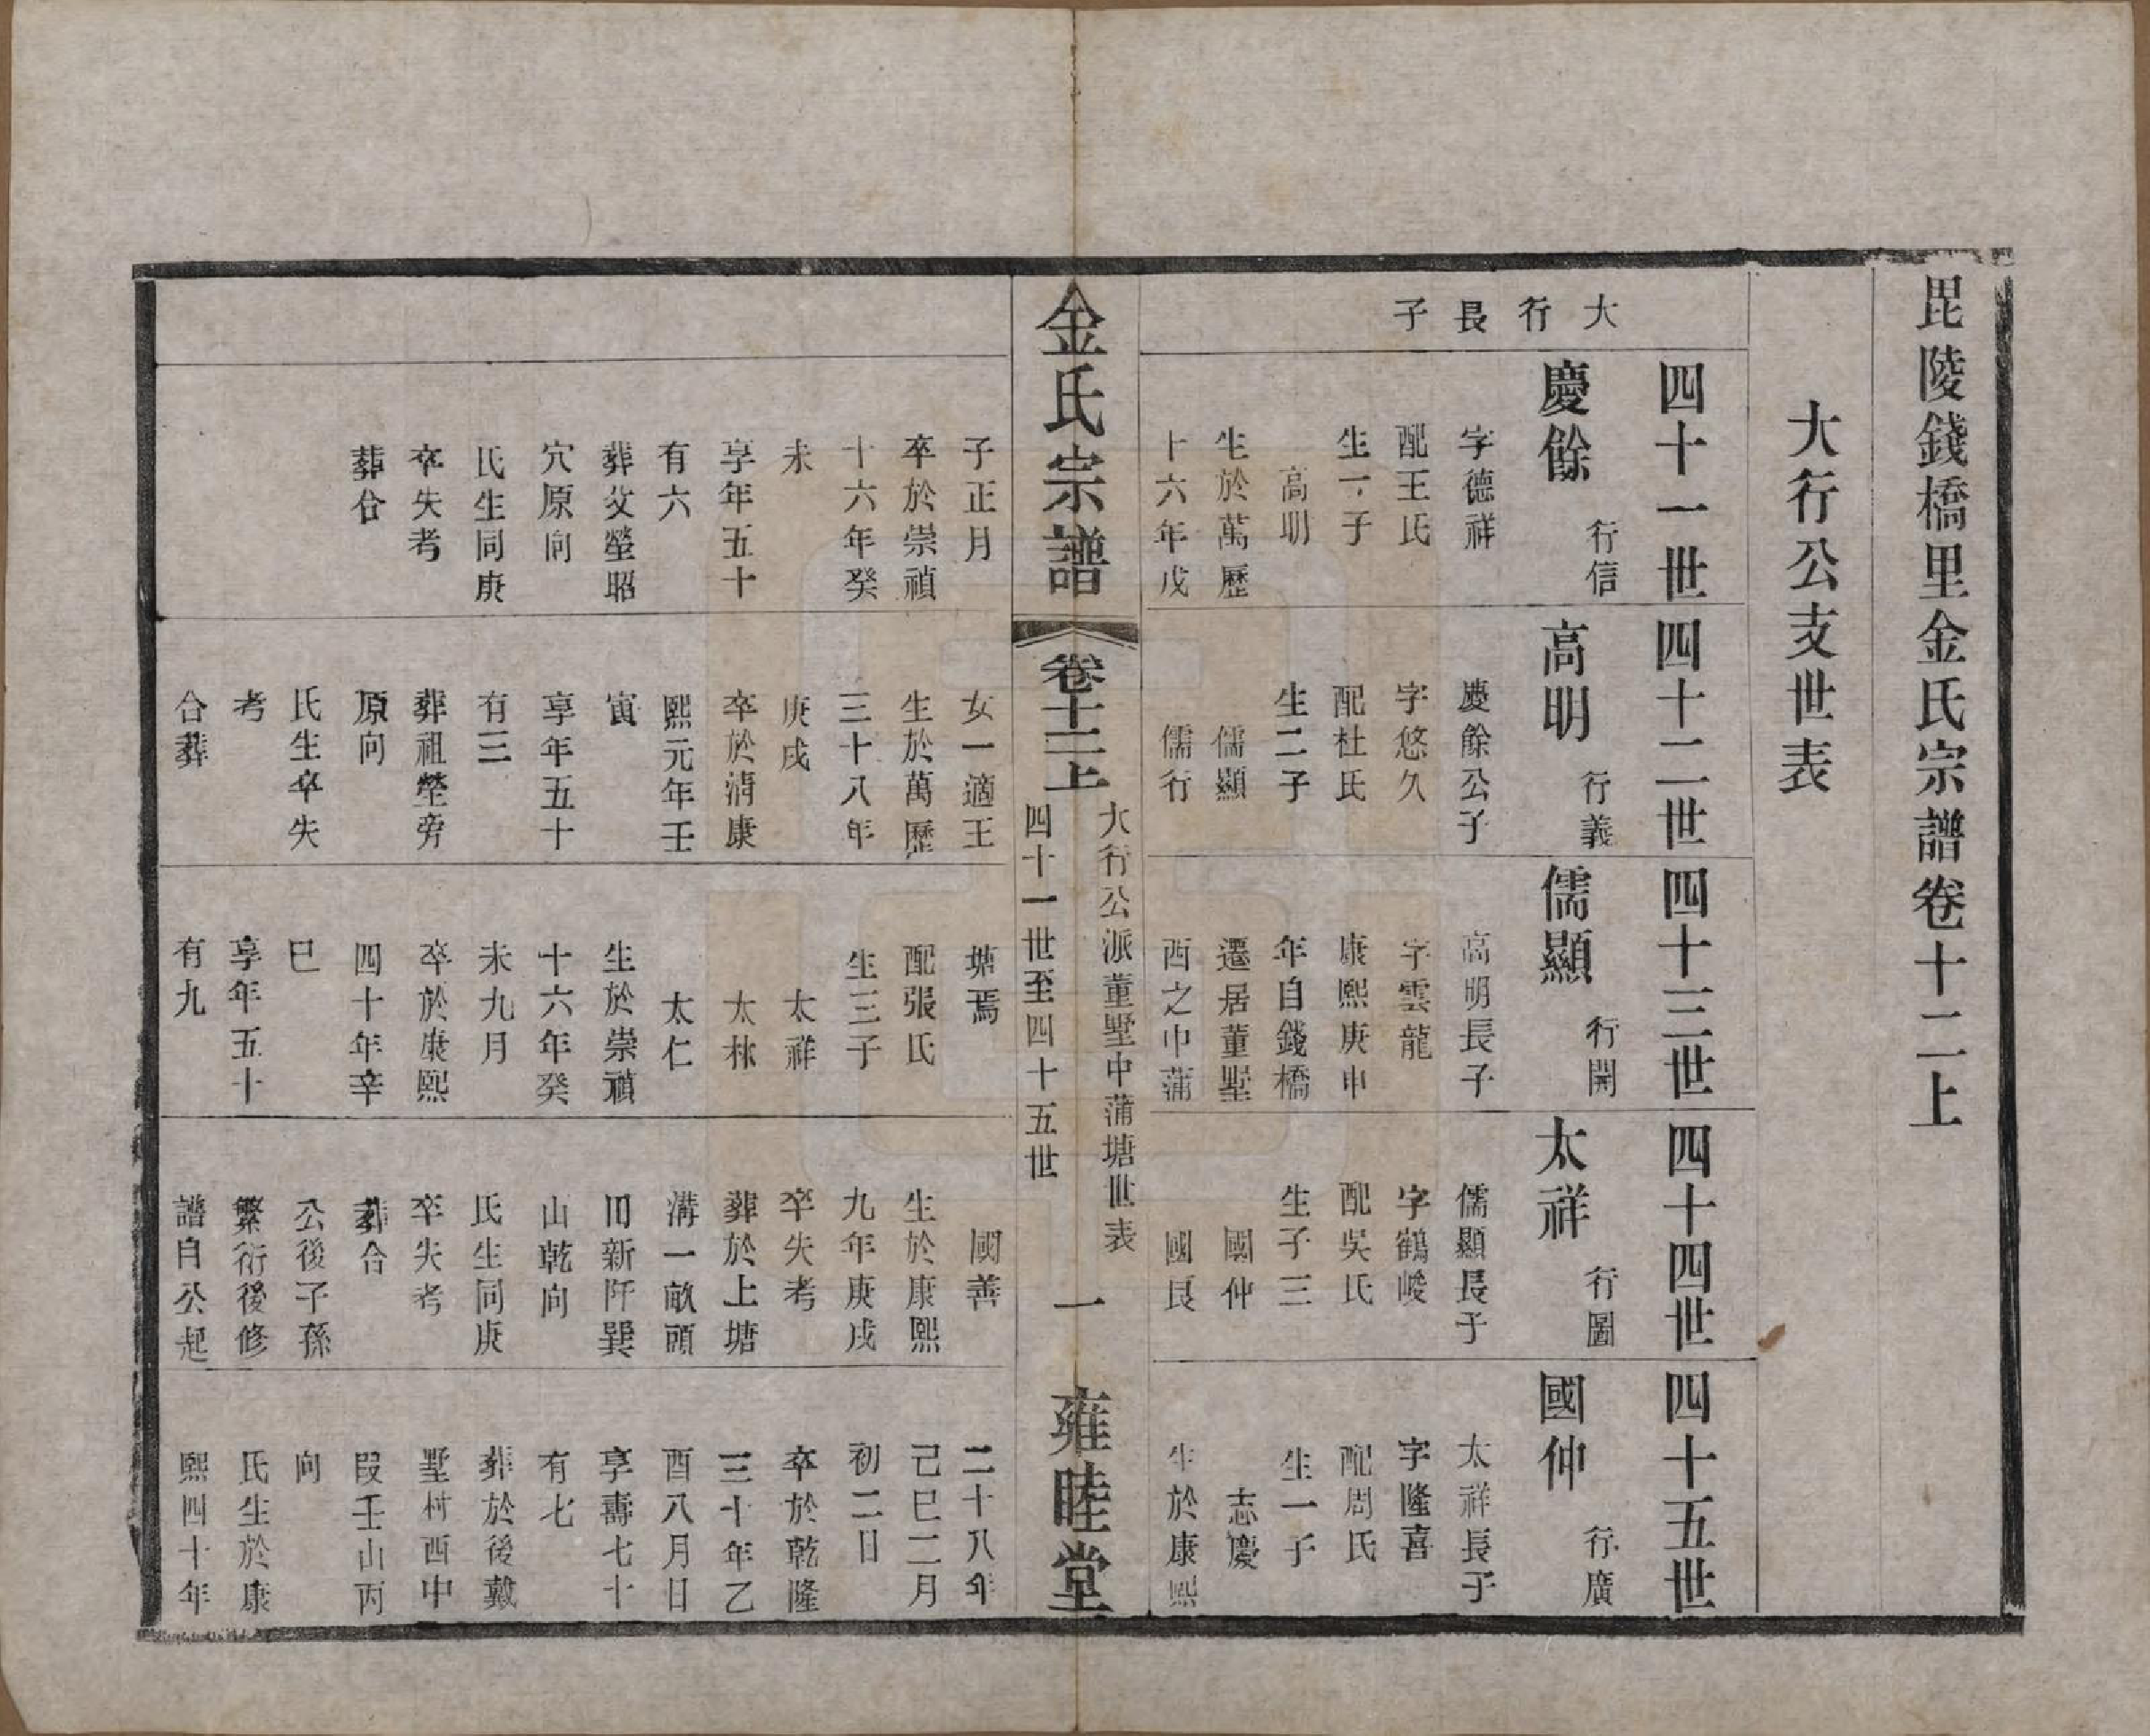 毘陵錢橋里金氏宗譜卷十二上
大行公支世表
大行長子
四十一世
慶餘 行信
字德祥
配王氏
生一子
高明
生於萬歷
十六年戊
子正月
卒於崇禎
十六年癸
未
享年五十
有六
葬父塋昭
穴原向
氏生同庚
卒失考
合葬
四十二世
高明 行義
慶餘公子
字悠久
配杜氏
生二子
儒顯
儒行
女一適王
生於萬歷
三十八年
庚戌
卒於清康
熙元年壬
寅
享年五十
有三
葬祖塋旁
原向
氏生卒失
考
合葬
四十三世
儒顯 行開
高明長子
字雲龍
康熙庚申
年自錢橋
遷居董墅
西之中蒲
塘焉
配張氏
生三子
太祥
太林
太仁
生於崇禎
十六年癸
未九月
卒於康熙
四十年辛
巳
享年五十
有九
四十四世
太祥 行圖
儒顯長子
字鶴峻
配吳氏
生子三
國仲
國良
國善
生於康熙
九年庚戌
卒失考
葬於上塘
溝一畝頭
田新阡巽
山乾向
氏生同庚
卒失考
合葬
公後子孫
繁衍後修
譜自公起
四十五世
國仲 行廣
太祥長子
字隆喜
配周氏
生一子
志慶
生於康熙
二十八年
己巳二月
初二日
卒於乾隆
三十年乙
酉八月日
享壽七十
有七
葬於後戴
墅村西中
段壬山丙
向
氏生於康
熙四十年
金氏宗譜
卷十二上
大行公派董墅中蒲塘世表
四十一世至四十五世
一
雍睦堂